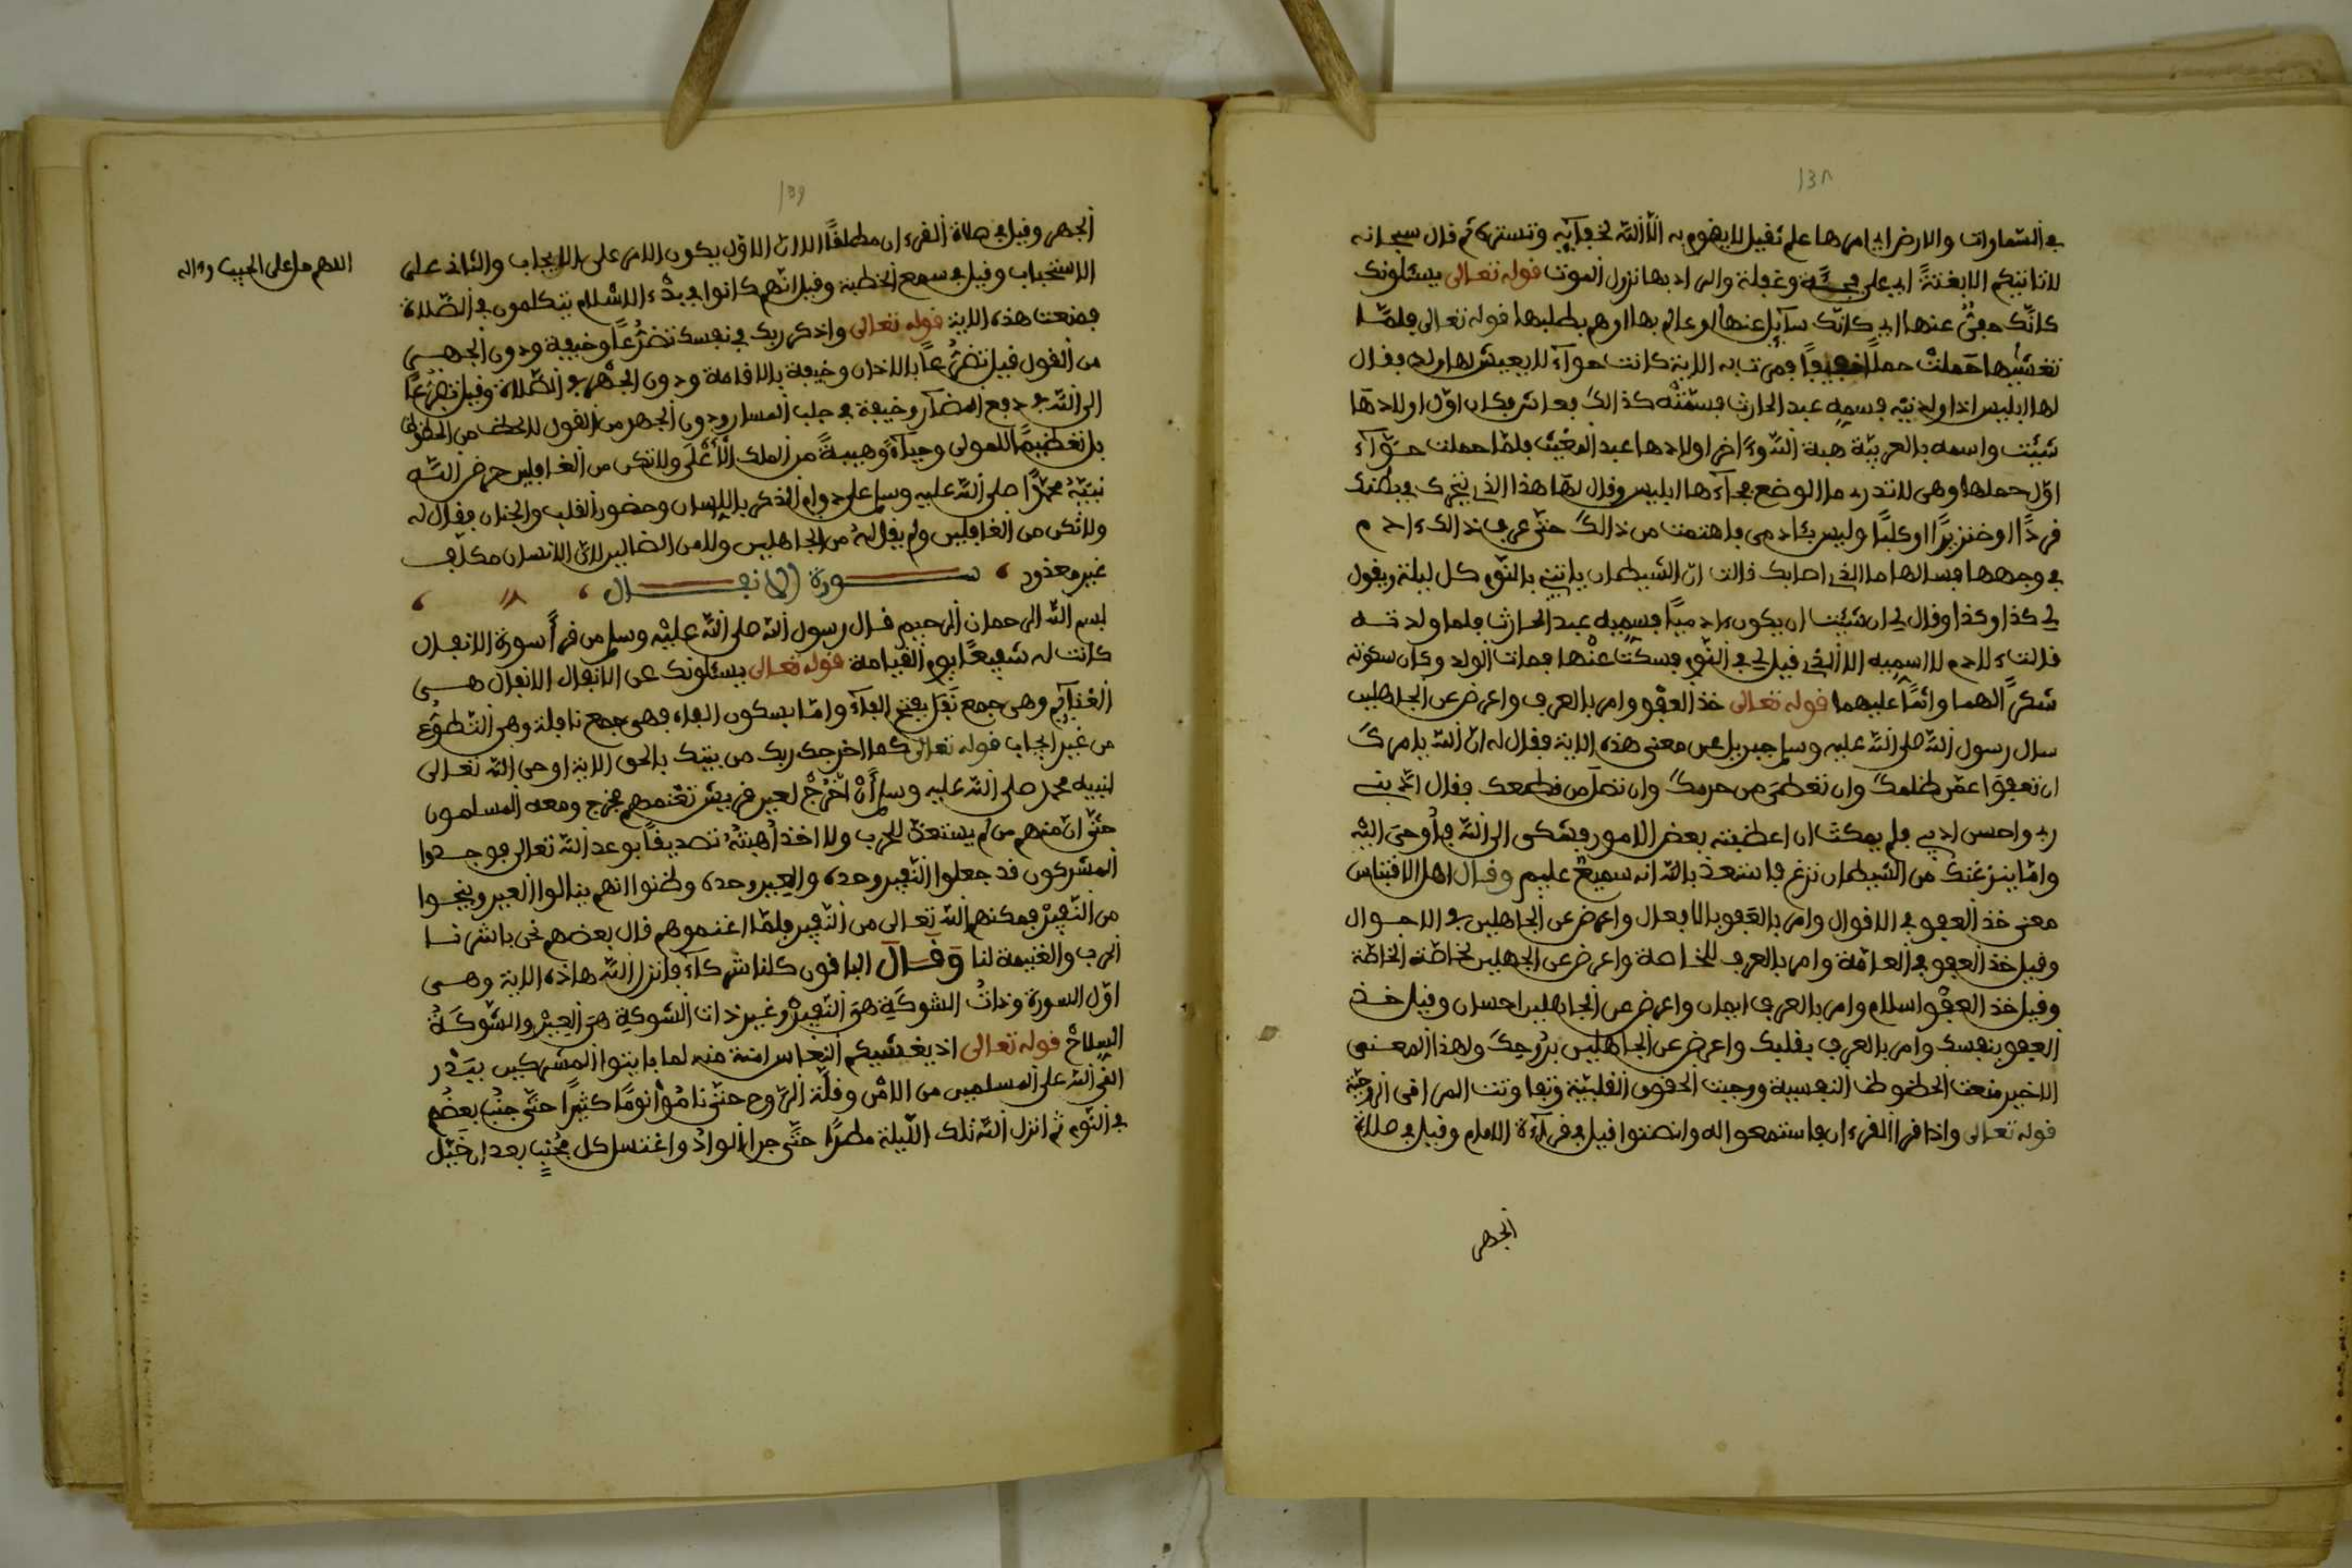 138
في السماوات والارض اي امرها علم ثقيل لا يقوم به الا الله لخفآيه وتستره ثم قال سبحانه
لا تاتيكم الا بغتةً اي على فجــأة وغفلة والمراد بها نزول الموت قوله تعالى يسئلونك
كانّك حفىّ عنها اي كانّك سآيل عنها او عالم بها اوهم بطلبها قوله تعالى فلمّـا
تغشّيها حملت حملاً خفيفاً فمرت به الاية كانت حوآء لا يعيش لها ولد فقال
لها ابليس اذا ولدتيه فسميه عبد الحارث فسمّتْه كذالك فعاش فكان اوّل اولادها
شيْت واسمه بالعربيّة هبة الله وءاخر اولادها عبد المغيث فلمّا حملت حـوّآء
اوّل حملها وهي لا تدري ما الوضع فجآءها ابليس وقال لها هذا الذي يتحرك في بطنك
قردًا او خنزيرًا او كلبًا وليس بئادمي فاهتمت من ذالك حتّى عرف ذالك ءادم
في وجهها فسالها ما الذي اصابك قالت انّ الشيطان ياتيني بالنّوم كل ليلة ويقول
لي كذا وكذا وقال لي ان شئت ان يكون ءادميًا فسميه عبد الحارث فلما ولدتــه
قالت ءلادم لا اسميه الا الذي قيل لي في النّوم فسكت عنْها فمات الولد وكان سكوته
شكرًا لهما واثمًا عليهما قوله تعالى خذ العفْو وامر بالعرف واعرض عن الجاهلين
سال رسول الله صلى الله عليه وسلم جبريل عن معنى هذه الاية فقال له انّ الله يامرك
ان تعفوا عمّن ظلمك وان تعطي من حرمك وان تصل من قطعك فقال ادّبني
ربي واحسن ادبي فلم يمكث ان اعطيته بعض الامور فشكى الى الله فأوحى اليْه
وامّا ينزغنك من الشيطان نزغ فاستعذ بالله انه سميع عليم وقـال اهل الاقتباس
معنى خذ العفو في الاقوال وامر بالعفو بالافعال واعرض عن الجاهلين في الاحـوال
وقيل خذ العفو في العامّة وامر بالعرف للخاصة واعرض عن الجهلين لخاصّة الخاصّة
وقيل خذ العفْو اسلام وامر بالعرف ايمان واعرض عن الجاهلين احسان وقيل خــذ
العفو بنفسك وامر بالعرف بقلبك واعرض عن الجاهلين بروحك ولهذا المعـنـى
الاخير منعت الحظوظ النفسية ووجبت الحقوق القلبيّة وتفاوتت المراقى الروحيّة
قوله تعالى واذا قرا القرءان فاستمعوا له وانصتوا قيل في قرآءة الامام وقيل في صلاة
الجهر
139
الجهر وقيل في صلاة القرءان مطلقاً الا انّ الاوّل يكون الامر على الايجاب والثاني على
الاستحباب وقيل في سمع الخطبة وقيل انّهم كانوا في بدْء الاسْلام يتكلمون في الصّلاة
فمنعت هذه الاية قوله تعالى واذكر ربك في نفسك تضرُّعًا وخيفة ودون الجهــر
من القول قيل تضرُّعاً بالاذان وخيفة بالاقامة ودون الجهْر في الصّلاة وقيل تضرُّعًا
الى الله في دفع المضآر وخيفة في جلب المسار ودون الجهر من القول لا لحظ من الحظوظ
بل تعظيمًا للمولى وحيآءً وهيبةً من الملك الأَعْلَى ولا تكن من الغافلين حرض اللـه
نبيّهُ محمّدًا صلى الله عليه وسلم على دوام الذكر باللسان وحضور القلب والجنان فقال له
ولا تكن من الغافلين ولم يقل لهُ من الجاهلين ولا من الضالين لانّ الانسان مكلّف
غير معذور ، ســورة الانفـــال ، ،
بسم الله الرحمان الرحيم قـال رسول الله صلى الله عليْه وسلم من قرأَ سورة الانفال
كانت له شفيعًا يوم القيامة قوله تعالى يسئلونك عن الانفال الانفال هــي
الغنآيم وهي جمع نَفَل بفتح الفآء وامّا بسكون الفاء فهى جمع نافلة وهي التّطوُّع
من غير ايجاب قوله تعالى كما اخرجك ربك من بيتك بالحق الاية اوحى الله تعالى
لنبيه محمد صلى الله عليه وسلم أَنْ اخْرُجْ لعير قريش تغنمهم فخرج ومعه المسلمون
حتّى انّ منهم من لم يستعدّ للحرب ولا اخذ أُهبتهُ تصديقاً بوعد الله تعالى فوجــدوا
المشركون قد جعلوا النّفير وحده والعير وحده وظنوا انهم ينالوا العير وينجــوا
من النّفيرْ فمكنهم الله تعالى من النّفير فلمّا اغنموهم قال بعضهم نحن باشرنــا
الحرب والغنيمة لنا وَقَــالَ الباقون كلنا شركآء فانزل الله هاذه الاية وهــي
اوّل السورة وذاتُ الشوكةِ هيَ النّفيرُ وغير ذات الشوكةِ هيَ العِيْرُ والشوكــةُ
السلاحْ قوله تعالى اذ يغشيكم النعاس امنة منه لما باتوا المشركين ببــدْر
القى الله على المسلمين من الامْن وقلّة الرّوع حتّى نامُوا نومًا كثيرًا حتّى جنُب بعضُهم
في النّوم ثم انزل الله تلك اللّيلة مطرًا حتّى جرا الوادْ واغتسل كل مجْنبٍ بعد ان خيّل
اللهم صل على الحبيب وءاله